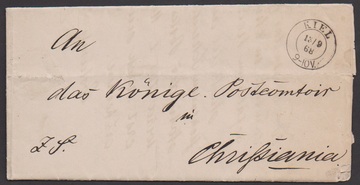 KIEL
13/9
68
An
das Königl. Postcomtoir
in
Z. S.
Christiania